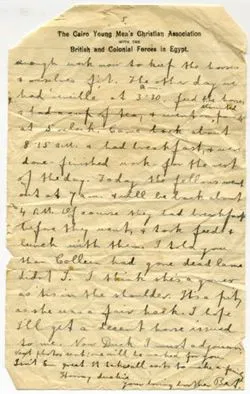 5.
The Cairo Young Men's Christian Association
WITH THE
British and Colonial Forces in Egypt.
enough work now to keep the horses
& ourselves fit. The other day we
had reveille at 3-30 am. fed the horses
had a cup of tea, &
at 5 o'clock. Came back about
8.15 a.m. & had breakfast, & were
done. finished work for the rest
of the day. Today the fellows went
out at 7 a.m. & will be back about
4 p.m. Of course they had breakfast
before they went, & took feeds &
lunch with them. I told you
that Colleen had gone dead lame
didn't I. I think she's
as his in the shoulder. It's a pity
as she was a fair hack. I hope
I'll get a decent horse issued
to me. Now Duck I must adjourn
photos will be asked for you
Isn't it great. It takes all sorts to make a
Hooray, duckie
your loving brother Bert.